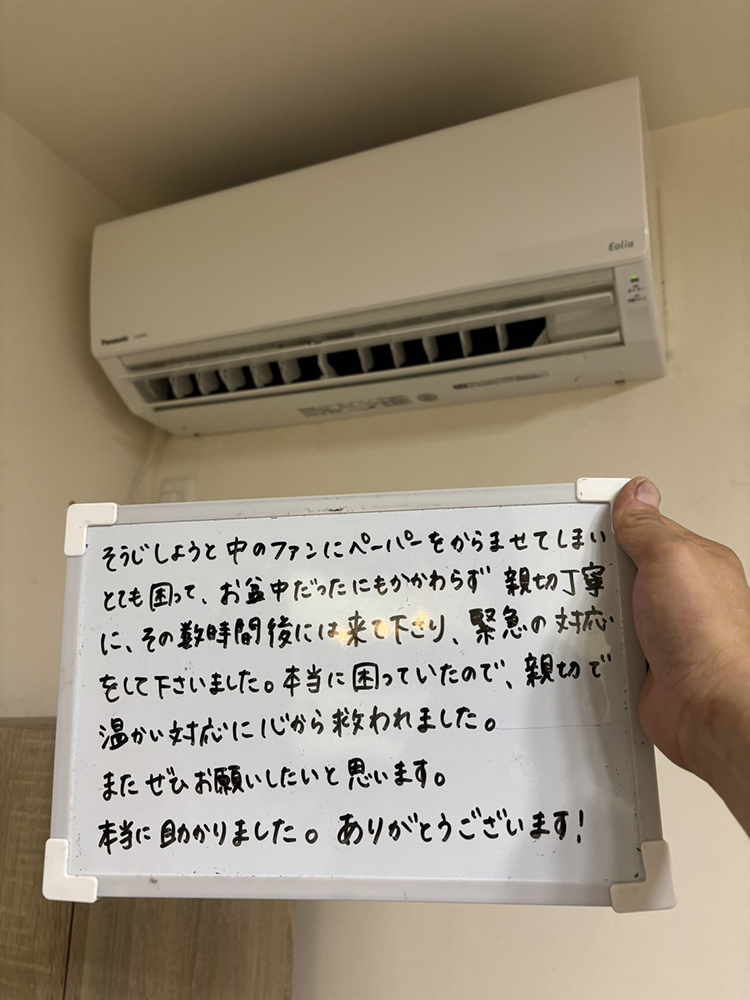 Eolia
Panasonic
そうじしようと中のファンにペーパーをからませてしまい
とても困って、お盆中だったにもかかわらず親切丁寧
に、その数時間後には来て下さり、緊急の対応
をして下さいました。本当に困っていたので、親切で
温かい対応に心から救われました。
またぜひお願いしたいと思います。
本当に助かりました。ありがとうございます!